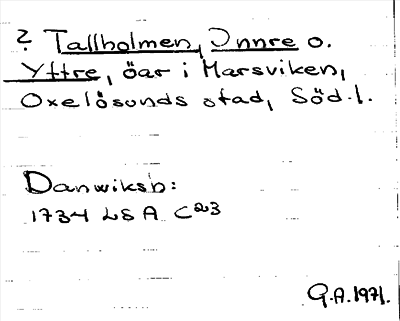 ? Tallholmen, Innre o.
Yttre, öar i Marsviken,
Oxelösunds stad, Söd.l.
Danwiksh:
1734 LSA C23
G.A. 1971.